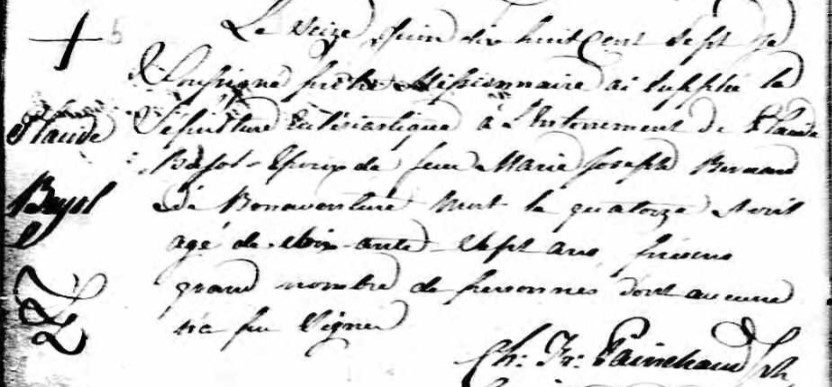 Le seize Juin dix huit Cent Sept je
Soussigné prêtre Missionnaire ai Supplée la
Claude
Sépulture Eclésiastique à l'Enterrement de Claude
Bujol Epoux de feue Marie Joseph Bernard
Bujol
De Bonaventure mort le quatorze Avril
agé de soixante Sept ans, présens
grand nombre de personnes dont aucune
n'a pu Signer
Ch: Fr: Painchaud